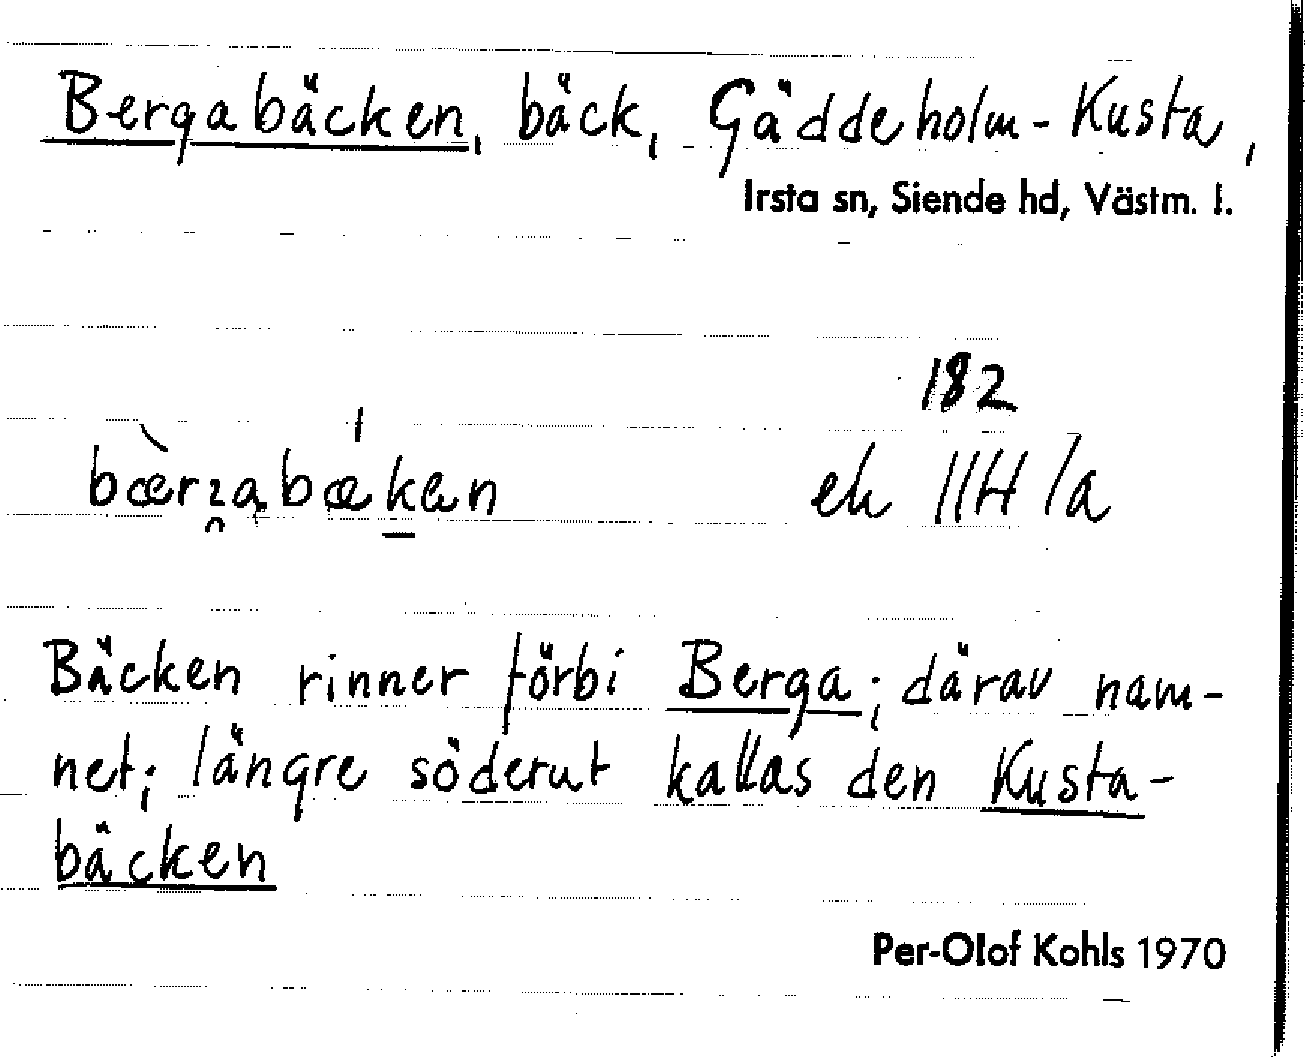 Bergabäcken, bäck, Gäddeholm-Kusta,
Irsta sn, Siende hd, Västm. l.
182
ek 11H /a
Bäcken rinner förbi Berga; därav nam-
net; längre söderut kallas den Kusta-
bäcken
Per-Olof Kohls 1970